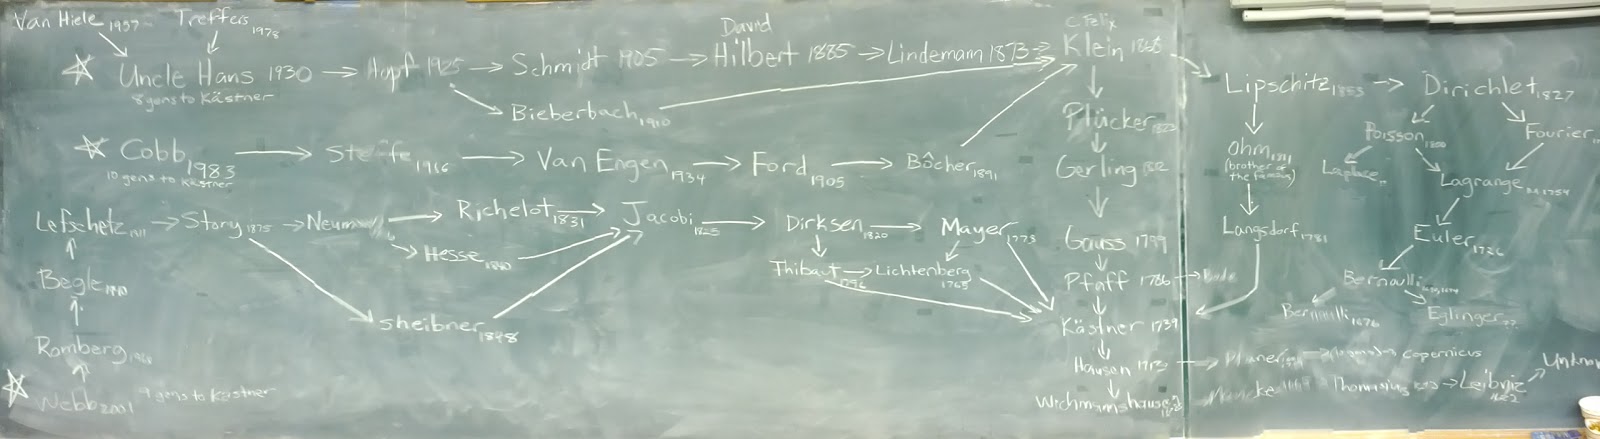 Van Hiele 1957 Treffers 1978
David
C. Felix
Uncle Hans 1930 → Hopf 1925 → Schmidt 1905 → Hilbert 1885 → Lindemann 1873 → Klein 1868
8 gens to Kästner
Lipschitz 1853 → Dirichlet 1827
Bieberbach 1910
Plücker 1823
Poisson 1800
Fourier
Cobb 1983 → Steffe 1966 → Van Engen 1934 → Ford 1905 → Bôcher 1891
10 gens to Kästner
Gerling 1812
Ohm 1811
(brother of
the famous)
Laplace
Lagrange B.A. 1754
Lefschetz 1911 → Story 1875 → Neumann → Richelot 1831 → Jacobi 1825 → Dirksen 1820 → Mayer 1773
Gauss 1799
Langsdorf 1781
Euler 1726
Hesse 1840
Thibaut 1796 → Lichtenberg 1765
Begle 1940
Pfaff 1786 → Bode
Bernoulli
Sheibner 1848
Kästner 1739
Bernoulli 1676
Eglinger ??
Romberg 1968
Hausen 1713 → Planer → Copernicus
Unknown
Webb 2001 9 gens to Kästner
Wichmannshausen
Mencke → Thomasius → Leibniz